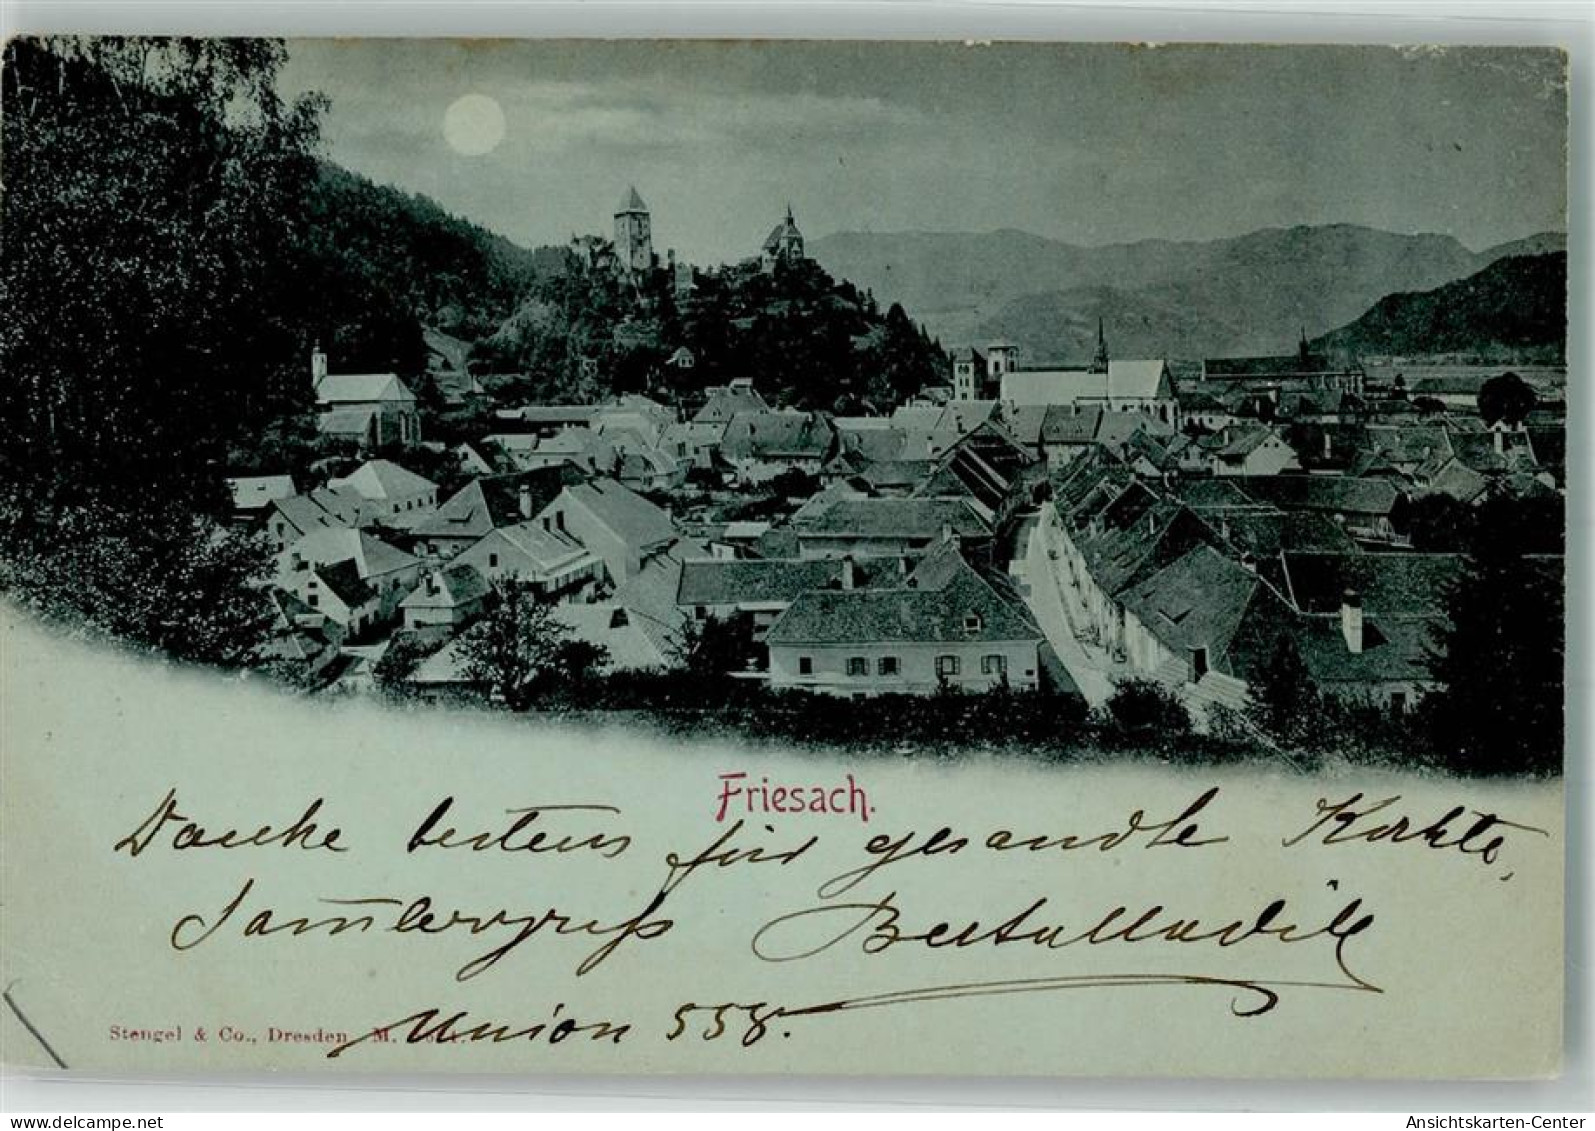 Friesach.
Danke bestens für gesandte Karte,
Sammlergruß
Union 558.
Stengel & Co., Dresden M.
www.delcampe.net
Ansichtskarten-Center